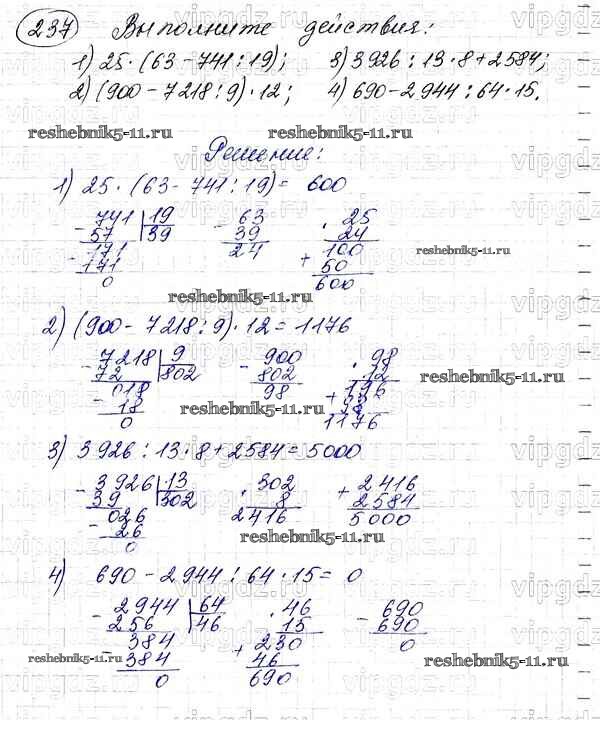 237 Выполните действия:
1) 25 · (63 - 741 : 19); 3) 3926 : 13 · 8 + 2584;
2) (900 - 7218 : 9) · 12; 4) 690 - 2944 : 64 · 15.
reshebnik5-11.ru reshebnik5-11.ru
Решение:
1) 25 · (63 - 741 : 19) = 600
- 741 | 19 - 63 · 25
57 | 39 39 24
- 171 24 100
171 + 50
0 600
reshebnik5-11.ru
reshebnik5-11.ru
2) (900 - 7218 : 9) · 12 = 1176
- 7218 | 9 - 900 · 98
72 | 802 802 12
- 018 98 196
18 + 98
0 1176
reshebnik5-11.ru reshebnik5-11.ru
3) 3926 : 13 · 8 + 2584 = 5000
- 3926 | 13 · 302 + 2416
39 | 302 8 2584
- 026 2416 5000
26
0
reshebnik5-11.ru
4) 690 - 2944 : 64 · 15 = 0
- 2944 | 64 · 46 - 690
256 | 46 15 690
- 384 230 0
384 + 46
0 690
reshebnik5-11.ru reshebnik5-11.ru
vipgdz.ru